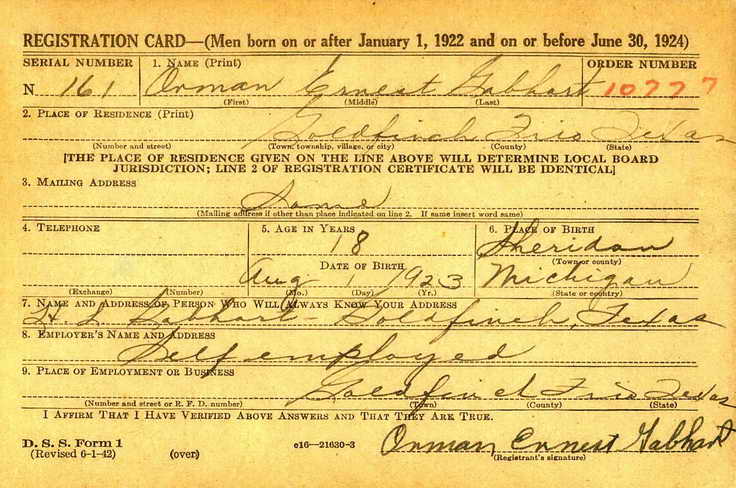 REGISTRATION CARD—(Men born on or after January 1, 1922 and on or before June 30, 1924)
SERIAL NUMBER 1. NAME (Print) ORDER NUMBER
N 161 Orman Ernest Gabhart 10777
(First) (Middle) (Last)
2. PLACE OF RESIDENCE (Print)
Goldfinch Frio Texas
(Number and street) (Town, township, village, or city) (County) (State)
[THE PLACE OF RESIDENCE GIVEN ON THE LINE ABOVE WILL DETERMINE LOCAL BOARD
JURISDICTION; LINE 2 OF REGISTRATION CERTIFICATE WILL BE IDENTICAL]
3. MAILING ADDRESS
Same
(Mailing address if other than place indicated on line 2. If same insert word same)
4. TELEPHONE 5. AGE IN YEARS 6. PLACE OF BIRTH
18 Sheridan
DATE OF BIRTH (Town or county)
Aug 1 1923 Michigan
(Exchange) (Number) (Mo.) (Day) (Yr.) (State or country)
7. NAME AND ADDRESS OF PERSON WHO WILL ALWAYS KNOW YOUR ADDRESS
Gabhart - Goldfinch, Texas
8. EMPLOYER'S NAME AND ADDRESS
Self employed
9. PLACE OF EMPLOYMENT OR BUSINESS
Goldfinch Frio Texas
(Number and street or R. F. D. number) (Town) (County) (State)
I AFFIRM THAT I HAVE VERIFIED ABOVE ANSWERS AND THAT THEY ARE TRUE.
D. S. S. Form 1
(Revised 6-1-42) (over) c16—21630-3 Orman Ernest Gabhart
(Registrant's signature)